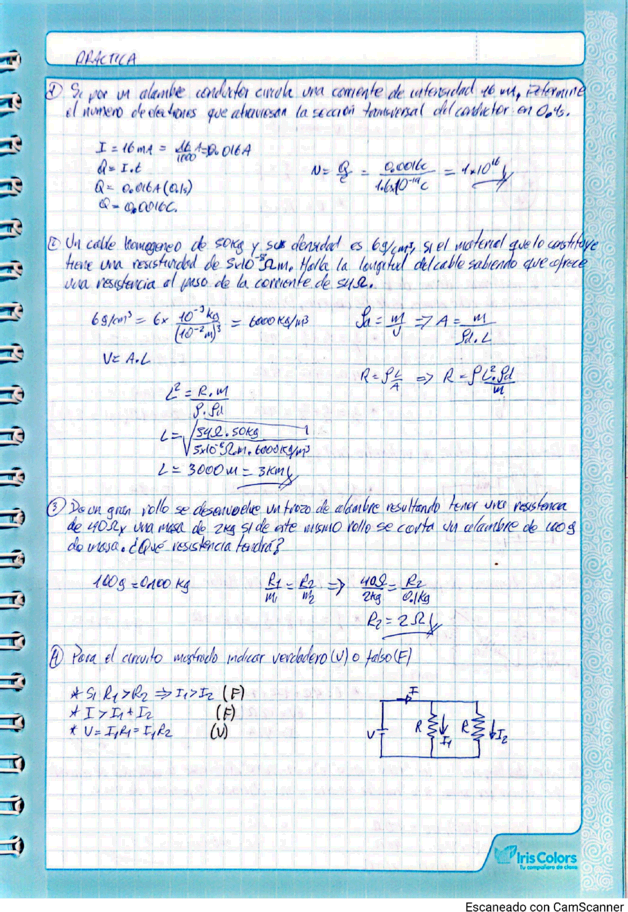 PRACTICA
① Si por un alambre conductor circula una corriente de intensidad 16 mA, Determine
el numero de electrones que atraviesan la sección transversal del conductor en 0.1s.
I = 16mA = 16/1000 A = 0.016A
Q = I.t
Q = 0.016A(0.1s)
Q = 0.0016C.
N = Q/e = 0.0016C / 1.6x10⁻¹⁹C = 1x10¹⁶
② Un cable homogeneo de 50kg y su densidad es 6g/cm³, si el material que lo constituye
tiene una resistividad de 5x10⁻⁸Ωm. Halla la longitud del cable sabiendo que ofrece
una resistencia al paso de la corriente de 54Ω.
6g/cm³ = 6x 10⁻³kg / (10⁻²m)³ = 6000kg/m³
ρd = m/V ⇒ A = m/ρd.L
V = A.L
R = ρ L/A ⇒ R = ρ L².ρd/m
L² = R.m / ρ.ρd
L = √ 54Ω.50kg / 5x10⁻⁸Ω.m.6000kg/m³
L = 3000m = 3km
③ De un gran rollo se desenvuelve un trozo de alambre resultando tener una resistencia
de 40Ω y una masa de 2kg si de este mismo rollo se corta un alambre de 100g
de masa. ¿Qué resistencia tendrá?
100g = 0.100 kg
R1/m1 = R2/m2 ⇒ 40Ω/2kg = R2/0.1kg
R2 = 2Ω
④ Para el circuito mostrado indicar verdadero (V) o falso (F)
* Si R1 > R2 ⇒ I1 > I2 (F)
* I > I1 + I2 (F)
* V = I1R1 = I1R2 (V)
I
V R I1 R I2
Iris Colors
Tu compañero de clase
Escaneado con CamScanner